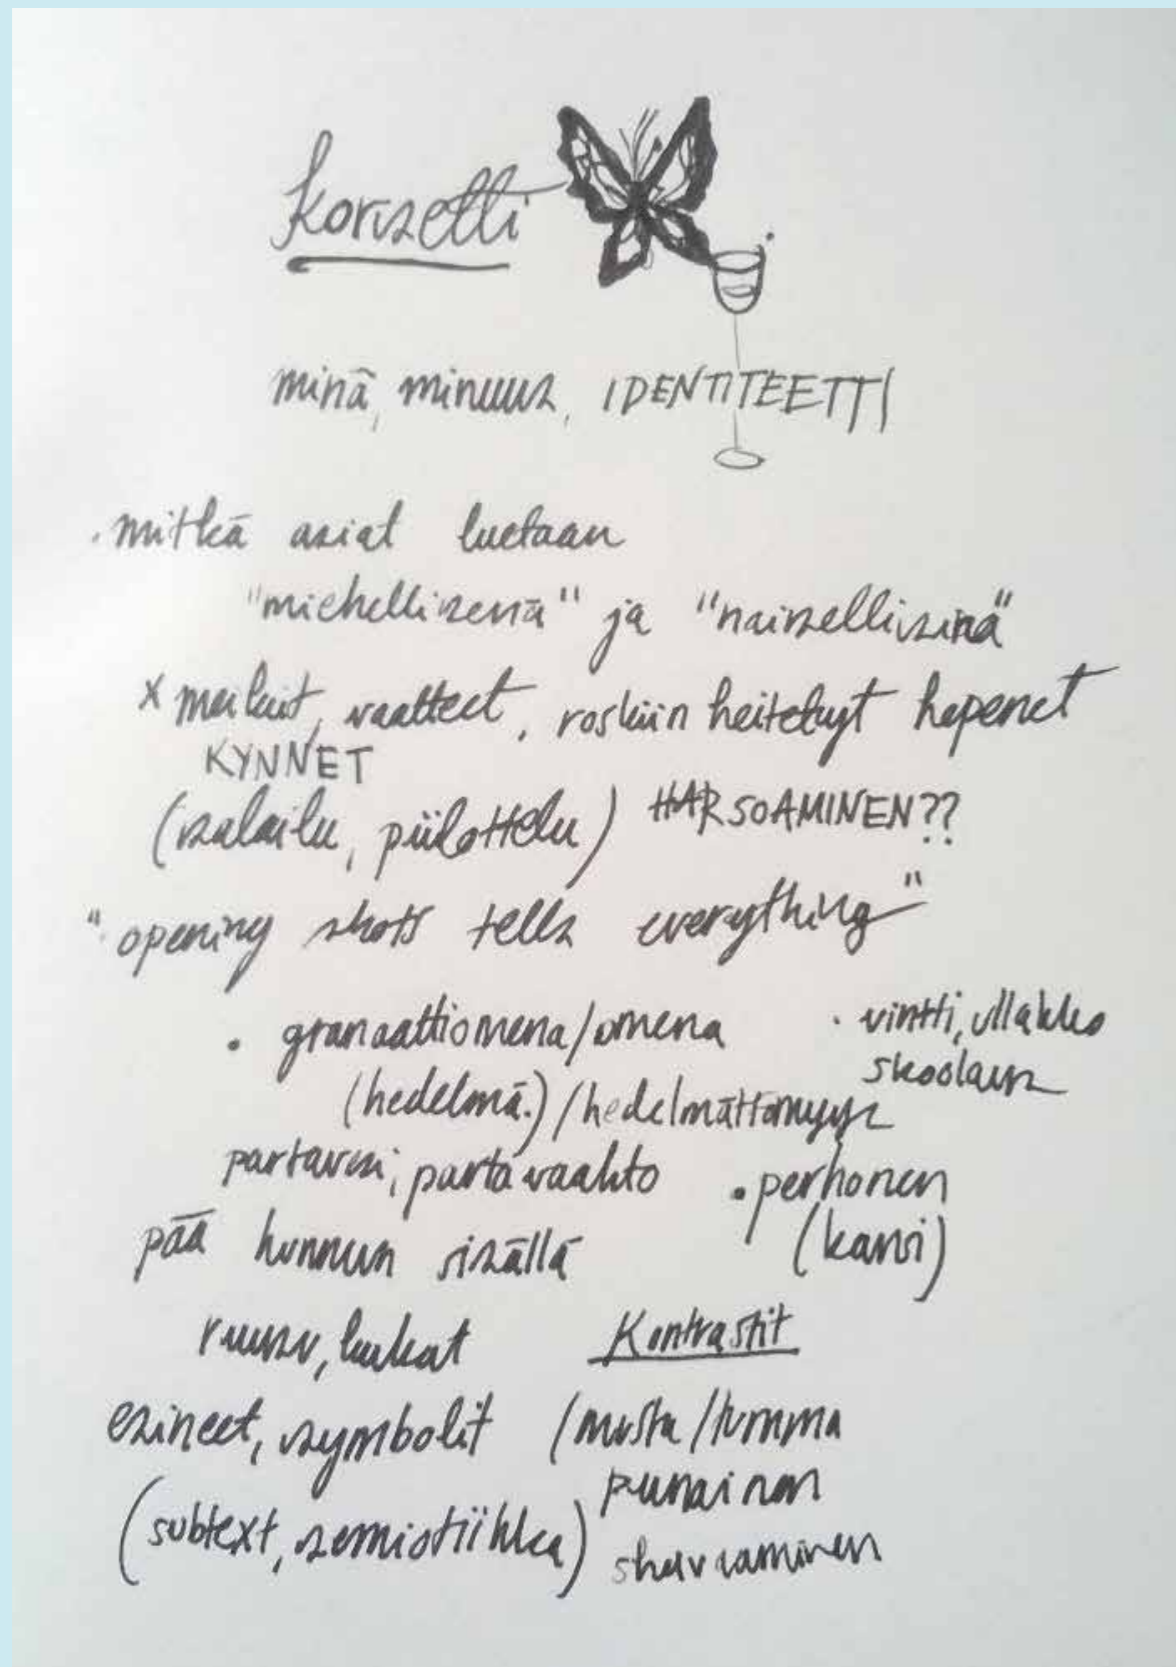 korsetti
minä, minuus, IDENTITEETTI
· mitkä asiat luetaan
"miehellisenä" ja "naisellisina"
x meikit, vaatteet, roskiin heitetyt hepenet
KYNNET
(salailu, piilottelu) HARSOAMINEN??
"opening shots tells everything"
· granaattiomena/omena
(hedelmä.)/hedelmättömyys
· vintti, ullakko
skoolaus
partavesi, partavaahto
· perhonen
(kansi)
pää hunnun sisällä
ruusu, luukat
Kontrastit
esineet, symbolit
(musta/tumma
punainen
(subtext, semiotiikka)
sheivaaminen